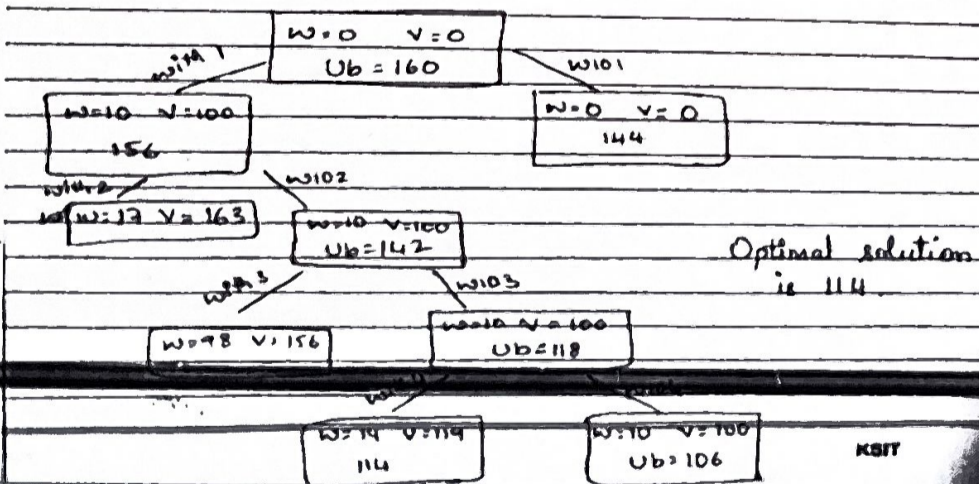 W=0 V=0
Ub = 160
with 1
w/o1
W=10 V=100
156
W=0 V=0
144
with 2
w/o2
W=17 V=163
W=10 V=100
Ub=142
Optimal solution
is 114
with 3
w/o3
V=156
W=10 V=100
Ub=118
V=114
114
W=10 V=100
Ub=106
KSIT